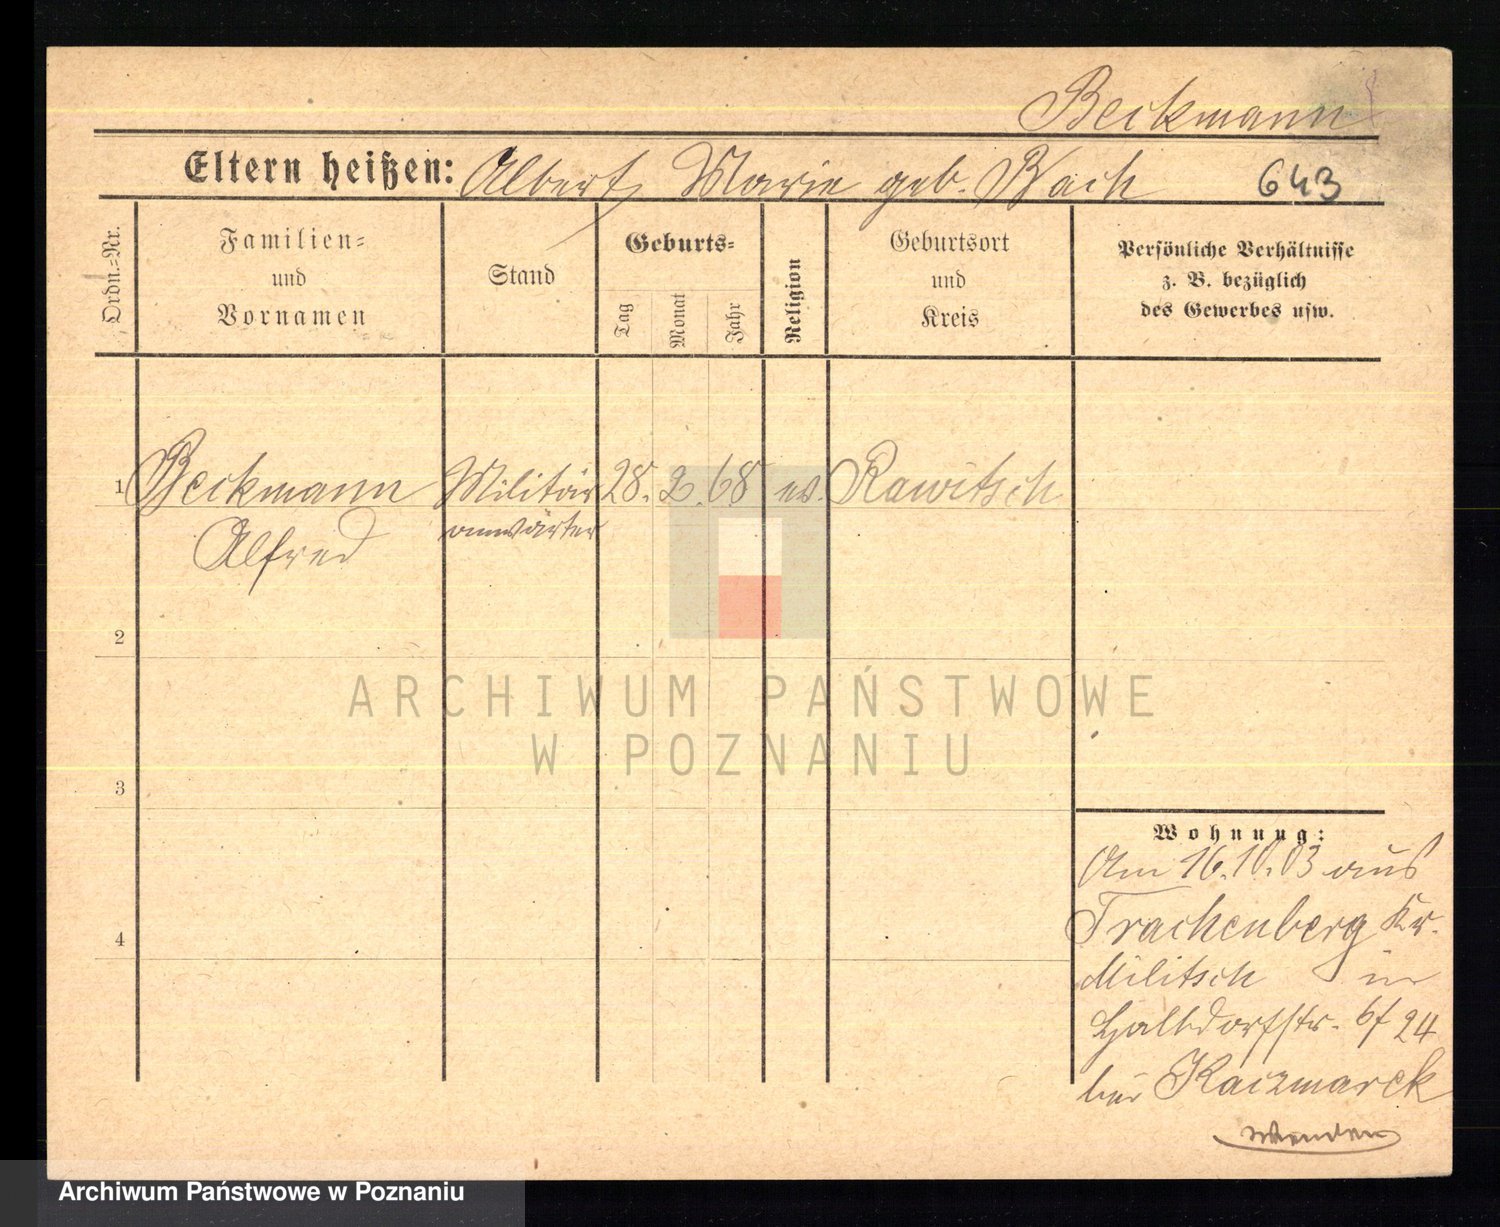 Beckmann
Eltern heißen: Albert, Marie geb. Bach 643
Ordn.=Nr.
Familien=
und
Vornamen
Stand
Geburts=
Tag
Monat
Jahr
Religion
Geburtsort
und
Kreis
Persönliche Verhältnisse
z. B. bezüglich
des Gewerbes usw.
1 Beckmann Militär 28. 2. 68 ev. Rawitsch
Alfred anwärter
2
3
4
ARCHIWUM PAŃSTWOWE
W POZNANIU
Wohnung:
Am 16.10.03 aus
Trachenberg Kr.
Militsch in
Halbdorfstr. 24
bei Kaczmarek
wenden
Archiwum Państwowe w Poznaniu